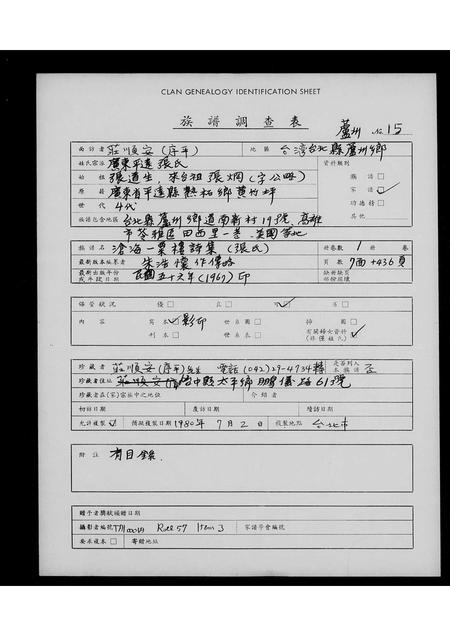 CLAN GENEALOGY IDENTIFICATION SHEET
族譜調查表 蘆洲 No 15
面訪者 莊順安(序平) 地區 台灣台北縣蘆洲鄉
姓氏宗派 廣東平遠張氏 資料類別
始祖 張道生，來台祖張炯(字公 族譜□
原籍 廣東省平遠縣熱柘鄉黃竹坪 家譜☑
世代 4代 功德榜□
族譜包含地區 台北縣蘆洲鄉道南新村193號、高雄 其他
市苓雅區田西里一巷
族譜名 滄海一粟樓詩集(張氏) 冊卷數 1 冊 卷
最新版本編纂者 朱浩懷作傳略 頁數 7面+436頁
最新出版年份或年定日期 民國五十六年(1967)印 缺冊缺頁部份損壞
保管狀況 優□ 良□ 可☑ 劣□
內容 寫本☑影印 世系圖□ 掃圖□
刊本□ 世系表□ 有關婦女資料(非僅姓氏) ☑
珍藏者 莊順安(序平)先生 電話(042)29-4734轉 是否列入本族譜 否
珍藏者住址 莊順安 台中縣太平鄉鵬儀路613號
珍藏者在(家)宗族中之地位 介紹者
初訪日期 複訪日期 陸訪日期
允許複製☑ 開始複製日期 1980年7月2日 複製地點 台北市
附註 有目錄.
贈予者獎狀頒贈日期
攝影者編號 Roll 57 Item 3 家譜學會編號
要求複本□ 寄贈地址